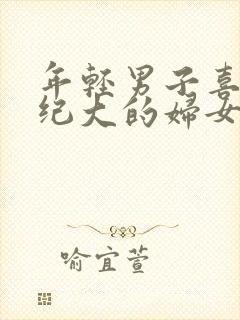 年輕男子喜
纪大的婦女
喻宜萱